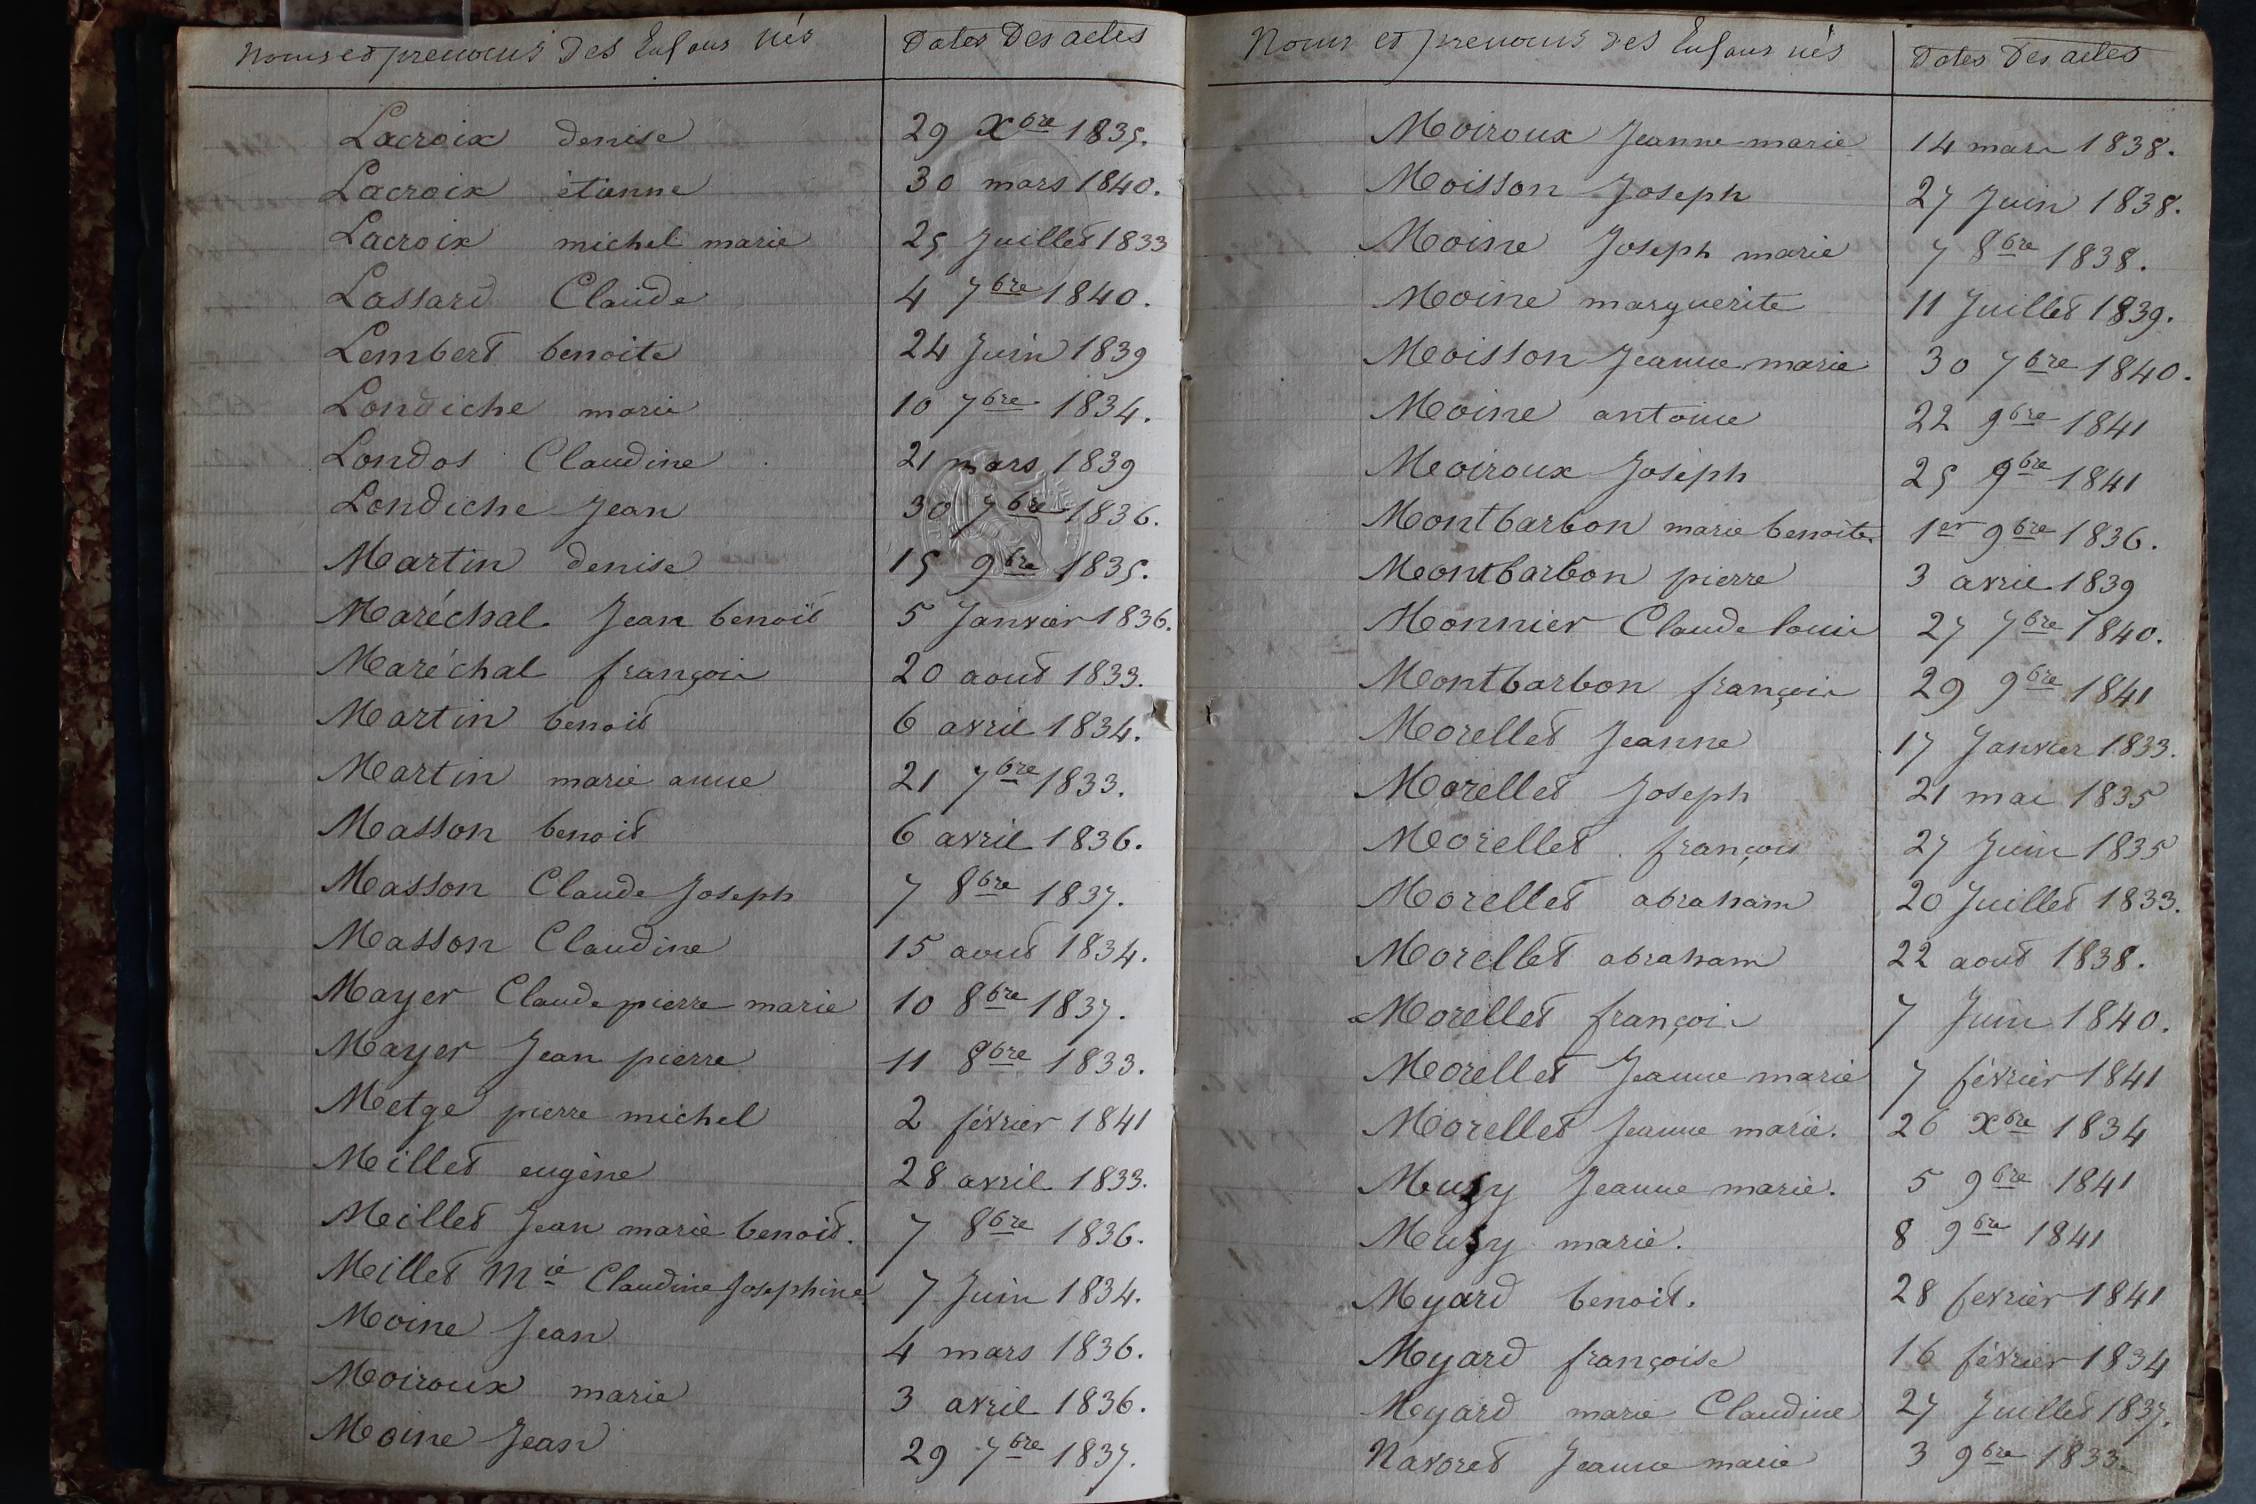 Noms et prenoms des Enfans nés
Dates Des actes
Lacroix denise 29 Xbre 1835.
Lacroix étienne 30 mars 1840.
Lacroix michel marie 25 Juillet 1833
Lassard Claude 4 7bre 1840.
Lembert benoite 24 Juin 1839
Londiche marie 10 7bre 1834.
Londos Claudine 21 mars 1839
Londiche Jean 30 7bre 1836.
Martin denise 15 9bre 1835.
Maréchal Jean benoit 5 Janvier 1836.
Maréchal françois 20 aout 1833.
Martin benoit 6 avril 1834.
Martin marie anne 21 7bre 1833.
Masson benoit 6 avril 1836.
Masson Claude Joseph 7 8bre 1837.
Masson Claudine 15 aout 1834.
Mayer Claude pierre marie 10 8bre 1837.
Mayer Jean pierre 11 8bre 1833.
Metge pierre michel 2 février 1841
Millet eugène 28 avril 1833.
Millet Jean marie benoit. 7 8bre 1836.
Millet Mie Claudine Josephine 7 Juin 1834.
Moine Jean 4 mars 1836.
Moiroux marie 3 avril 1836.
Moine Jean 29 7bre 1837.
Noms et prenoms des Enfans nés
Dates Des actes
Moiroux Jeanne marie 14 mars 1838.
Moisson Joseph 27 Juin 1838.
Moine Joseph marie 7 8bre 1838.
Moine marguerite 11 Juillet 1839.
Moisson Jeanne marie 30 7bre 1840.
Moine antoine 22 9bre 1841
Moiroux Joseph 25 9bre 1841
Montbarbon marie benoite. 1er 9bre 1836.
Montbarbon pierre 3 avril 1839
Monnier Claude louis 27 7bre 1840.
Montbarbon françois 29 9bre 1841
Morellet Jeanne 17 Janvier 1833.
Morellet Joseph 21 mai 1835
Morellet françois 27 Juin 1835
Morellet abraham 20 Juillet 1833.
Morellet abraham 22 aout 1838.
Morellet françois 7 Juin 1840.
Morellet Jeanne marie 7 février 1841
Morellet Jeanne marie. 26 xbre 1834
Muzy Jeanne marie. 5 9bre 1841
Muzy marie. 8 9bre 1841
Myard benoit. 28 fevrier 1841
Myard françoise 16 février 1834
Myard marie Claudine 27 Juillet 1837.
Navoret Jeanne marie 3 9bre 1833.